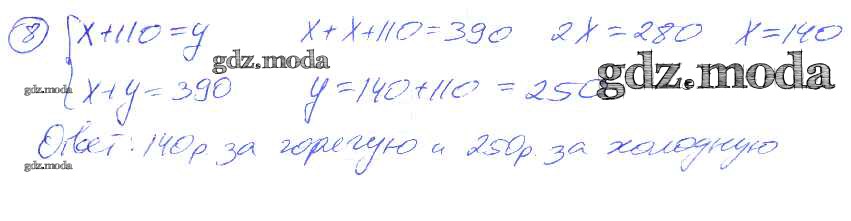 8) { x+110=y x+x+110=390 2x=280 x=140
gdz.moda
x+y=390 y=140+110=250
gdz.moda
gdz.moda
Ответ: 140р. за горячую и 250р. за холодную
gdz.moda